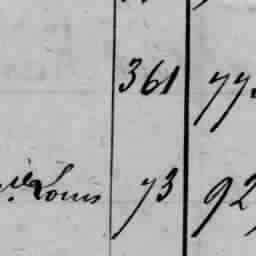 361 77
Louis 73 92